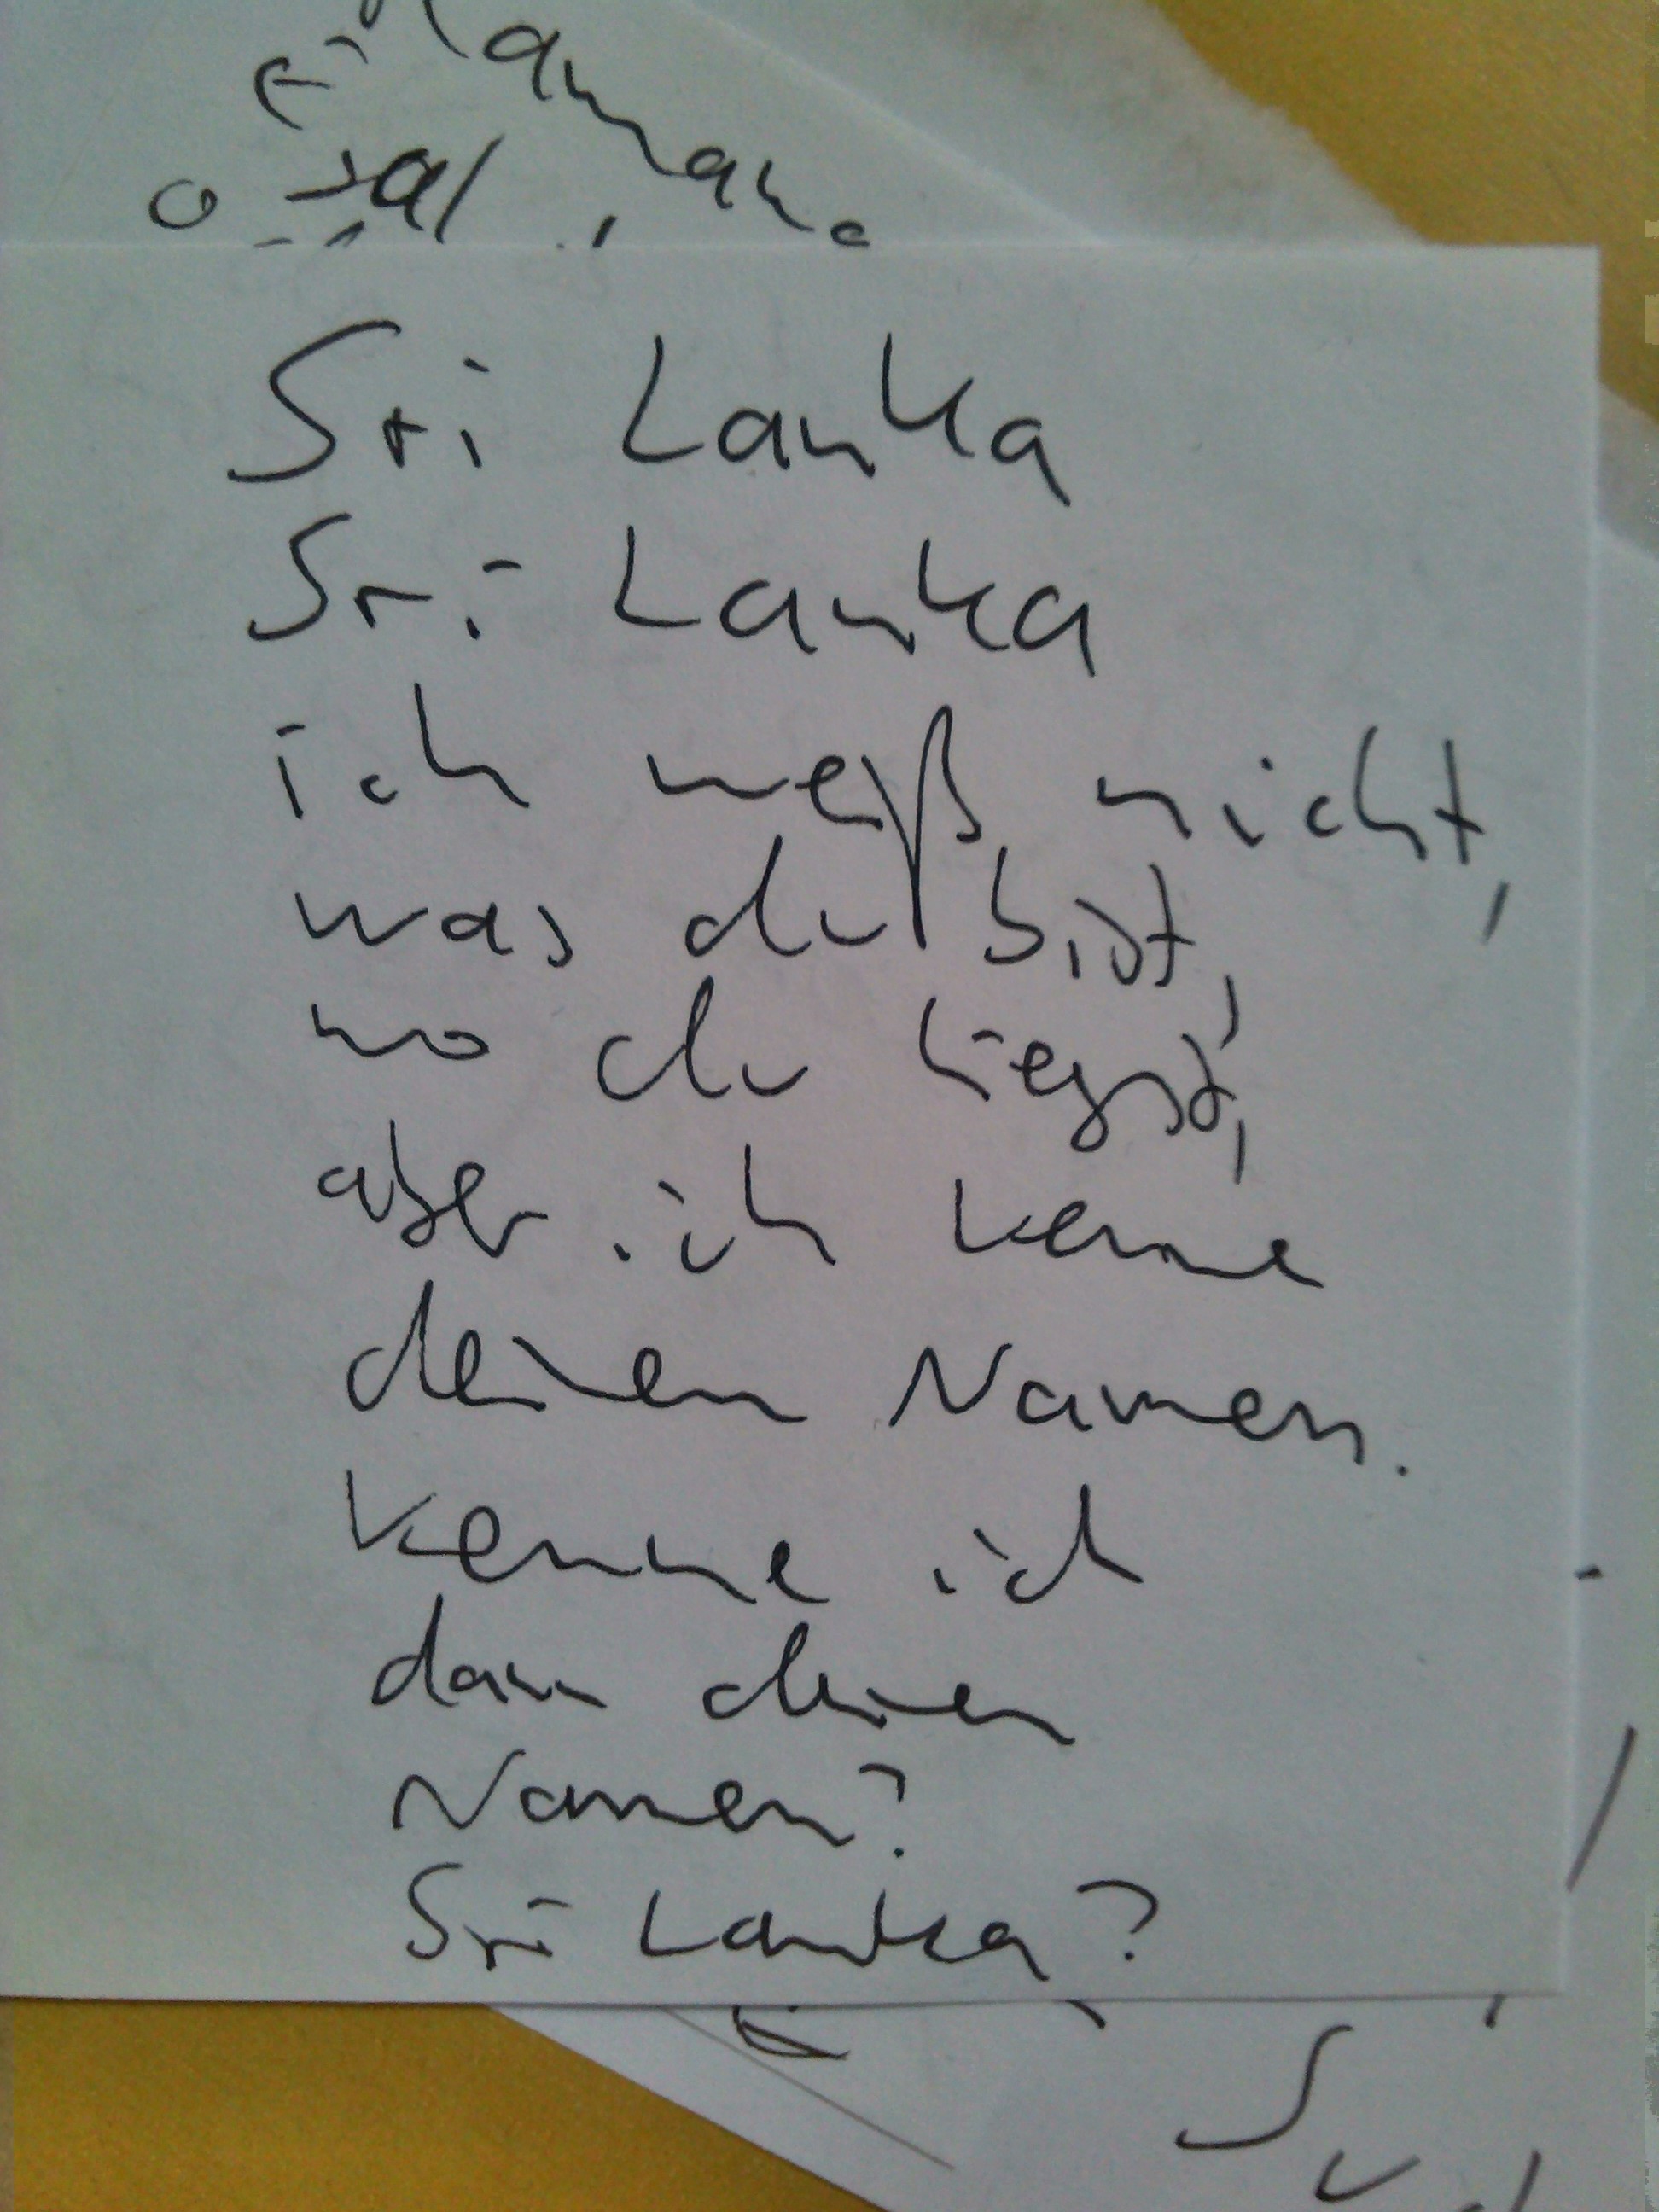 Sri Lanka
Sri Lanka
ich weiß nicht,
was du bist,
wo du liegst,
aber ich kenne
deinen Namen.
Kenne ich
dann deinen
Namen?
Sri Lanka?